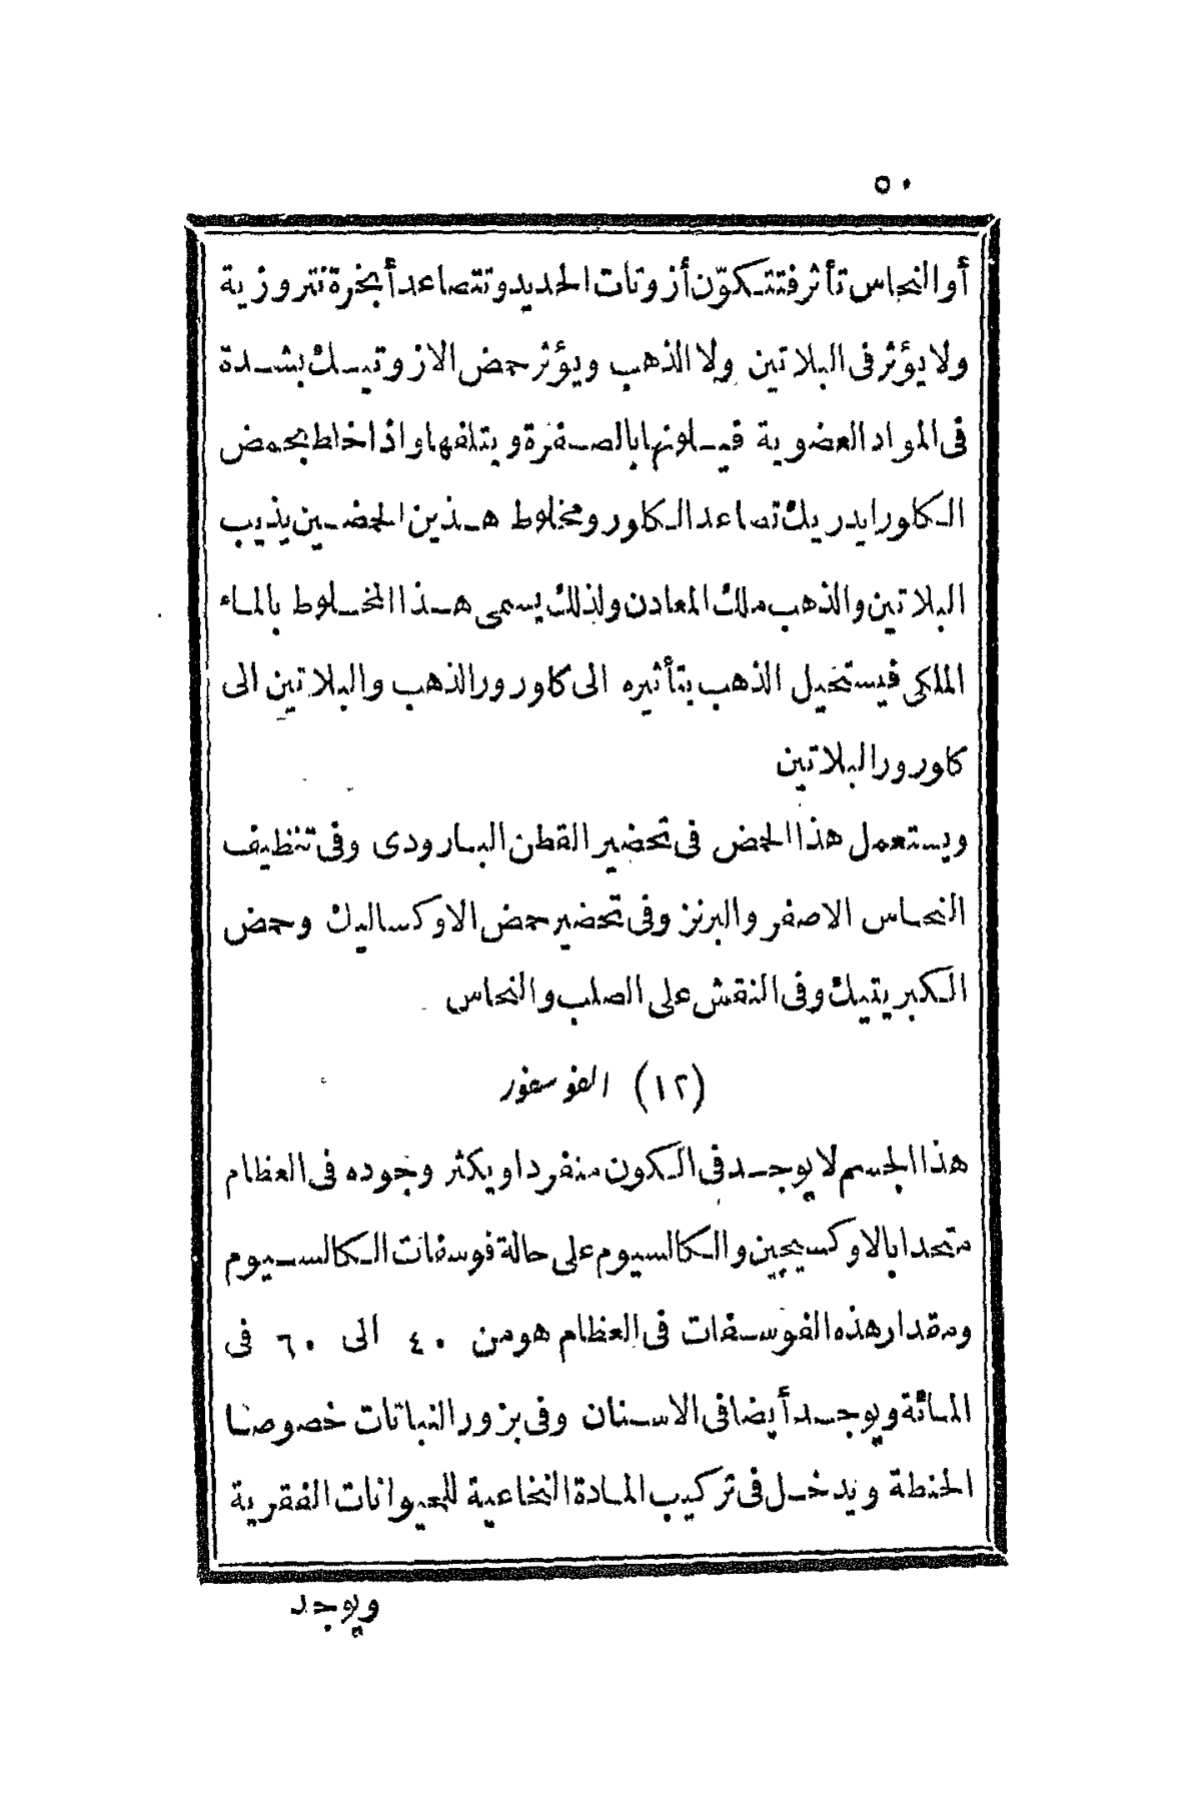 ٥٠
أو النحاس تأثر فتتكوّن أزوتات الحديد وتتصاعد أبخرة نتروزية
ولا يؤثر فى البلاتين ولا الذهب ويؤثر حمض الازوتيك بشدة
فى المواد العضوية فيلونها بالصفرة ويتلفها واذا خلط بحمض
الكلورايدريك تصاعد الكلور ومخلوط هذين الحمضين يذيب
البلاتين والذهب ملك المعادن ولذلك يسمى هذا المخلوط بالماء
الملكى فيستحيل الذهب بتأثيره الى كلورور الذهب والبلاتين الى
كلورور البلاتين
ويستعمل هذا الحمض فى تحضير القطن البارودى وفى تنظيف
النحاس الاصفر والبرنز وفى تحضير حمض الاوكساليك وحمض
الكبريتيك وفى النقش على الصلب والنحاس
(١٢) الفوسفور
هذا الجسم لا يوجد فى الكون منفردا ويكثر وجوده فى العظام
متحدا بالاوكسيجين والكالسيوم على حالة فوسفات الكالسيوم
ومقدار هذه الفوسفات فى العظام هو من ٤٠ الى ٦٠ فى
المائة ويوجد أيضا فى الاسنان وفى بزور النباتات خصوصا
الحنطة ويدخل فى تركيب المادة النخاعية للحيوانات الفقرية
ويوجد